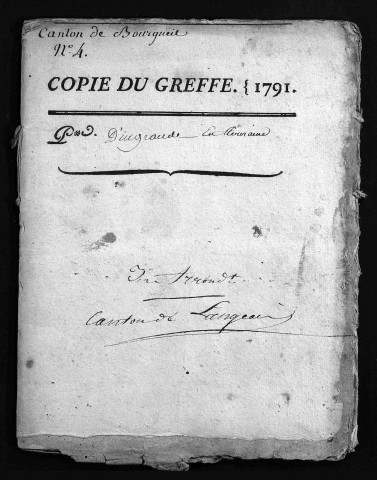 Canton de Bourgueil
N.º 4.
COPIE DU GREFFE. { 1791.
D'ingrande En Touraine
Arrondt.
Canton de Langeais